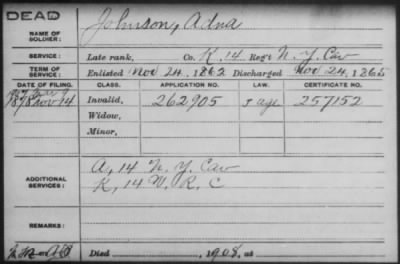 DEAD
NAME OF SOLDIER: Johnson, Adna
SERVICE: Late rank, Co. K, 14 Reg't N.Y. Cav
TERM OF SERVICE: Enlisted Nov 24, 1862 Discharged Nov 24, 1865
DATE OF FILING. CLASS. APPLICATION NO. LAW. CERTIFICATE NO.
Invalid, 262905 J age 257152
Widow,
Minor,
ADDITIONAL SERVICES: A, 14 N.Y. Cav
K, 14 V.R.C
REMARKS:
Died , 1908, at